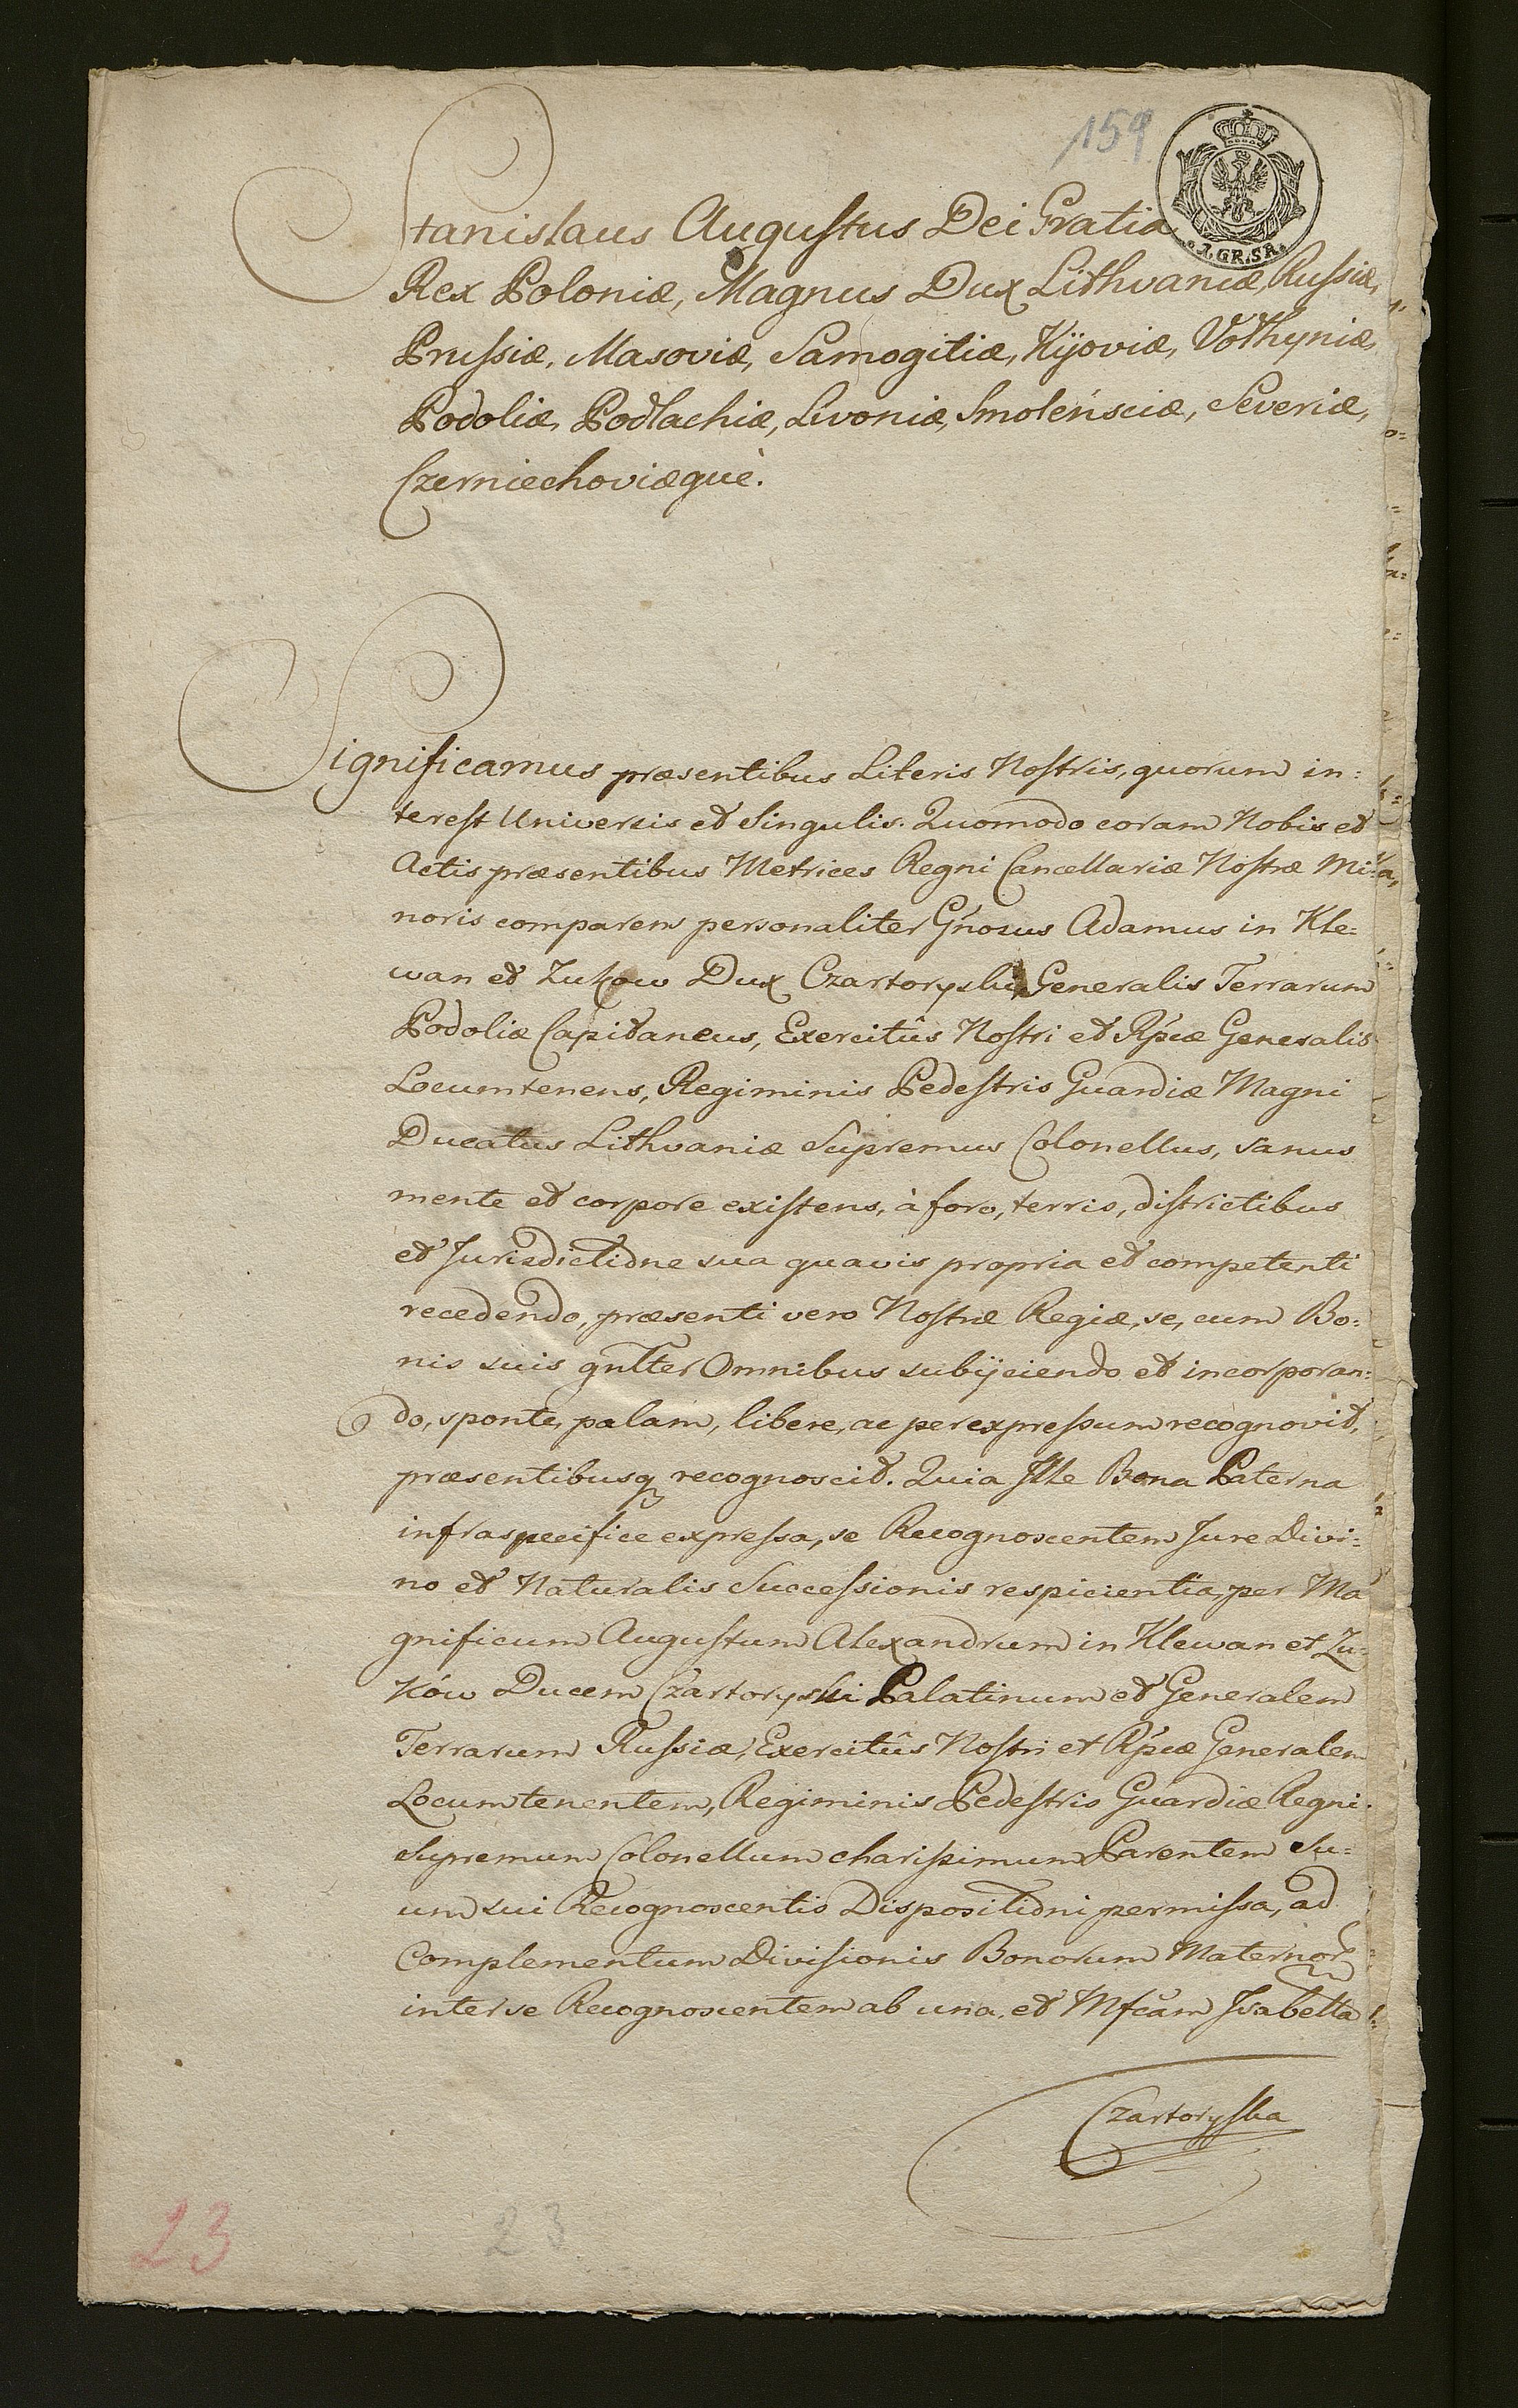 159
1.GR.SR.
Stanislaus Augustus Dei Gratia
Rex Poloniæ, Magnus Dux Lithvaniæ, Russiæ,
Prussiæ, Masoviæ, Samogitiæ, Kijoviæ, Volhyniæ,
Podoliæ, Podlachiæ, Livoniæ, Smolensciæ, Severiæ,
Czerniechoviæquè.
Significamus præsentibus Literis Nostris, quorum in=
terest Universis et Singulis. Quomodo coram Nobis et
Actis præsentibus Metrices Regni Cancellariæ Nostræ Mi=
noris comparens personaliter Gńosus Adamus in Kle=
wan et Zukow Dux Czartoryski, Generalis Terrarum
Podoliæ Capitaneus, Exercitûs Nostri et Rṕcæ Generalis
Locumtenens, Regiminis Pedestris Guardiæ Magni
Ducatus Lithvaniæ Supremus Colonellus, sanus
mente et corpore existens, à foro, terris, districtibus
et Jurisdictione sua quavis propria et competenti
recedendo, præsenti vero Nostræ Regiæ, se, cum Bo=
nis suis gnlter Omnibus subijciendo et incorporan=
do, sponte, palam, libere, ac per expressum recognovit,
præsentibusq recognoscit. Quia Ille Bona Paterna
infraspecifice expressa, se Recognoscentem Jure Divi=
no et Naturalis Successionis respicientia, per Ma
gnificum Augustum Alexandrum in Klewan et Zu=
ków Ducem Czartoryski Palatinum et Generalem
Terrarum Russiæ, Exercitûs Nostri et Rṕcæ Generalem
Locumtenentem, Regiminis Pedestris Guardiæ Regni
Supremum Colonellum charissimum Parentem Su=
um sui Recognoscentis Dispositioni permissa, ad
Complementum Divisionis Bonorum Maternor
inter se Recognoscentem ab una, et Mfcam Isabella
Czartoryska
23
23